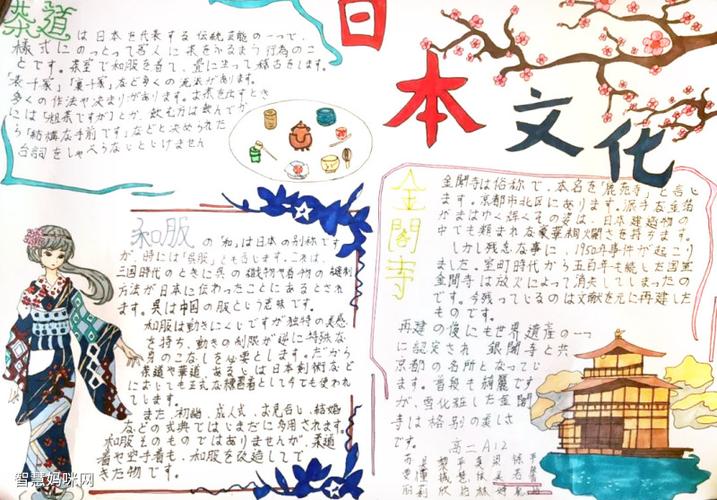 日本文化
茶道は日本を代表する伝統芸能の一つで、
様式にのっとって客人に茶をふるまう行為のこ
とです。茶室で和服を着て、畳に座って稽古をします。
「表千家」「裏千家」など多くの流派があります。
多くの作法や決まりがあります。お茶を出すとき
には「粗茶ですが」とか、飲む方は飲んでか
ら「結構なお手前です」などと決められた
台詞をしゃべらないといけません
和服の「和」は日本の別称です
が、時には「呉服」とも言します。これは、
三国時代のときに呉の織物や着物の縫制
方法が日本に伝わったことにあるとされ
ます。呉は中国の服という意味です。
和服は動きにくいですが独特の美感
を持ち、動きの制限が逆に特殊な
身のこなしを必要とします。だから
茶道や華道、あるいは日本剣術など
においても正式な練習着として今でも使われ
ています。
また、初詣、成人式、お見合い、結婚
などの式典ではいまだに多用されます。
和服そのものではありませんが、柔道
着や空手着も、和服を改造してで
きた物です。
金閣寺
金閣寺は俗称で、本名を「鹿苑寺」と言し
ます。京都市北区にあります。派手な金箔
がまばゆく輝くその姿は、日本建造物の
中でも類まれな豪華絢爛さを持ちます。
しかし残念な事に、1950年事件が起こり
ました。室町時代から五百年も続いた国宝
金閣寺は放火によって消失してしまったの
です。今残っているのは文献を元に再建した
ものです。
再建の後にも世界遺産の一つ
に認定され 銀閣寺と共
京都の名所となってい
ます。普段も綺麗です
が、雪化粧した金閣
寺は格別の美しさ
です。
高二A12
智慧妈咪网